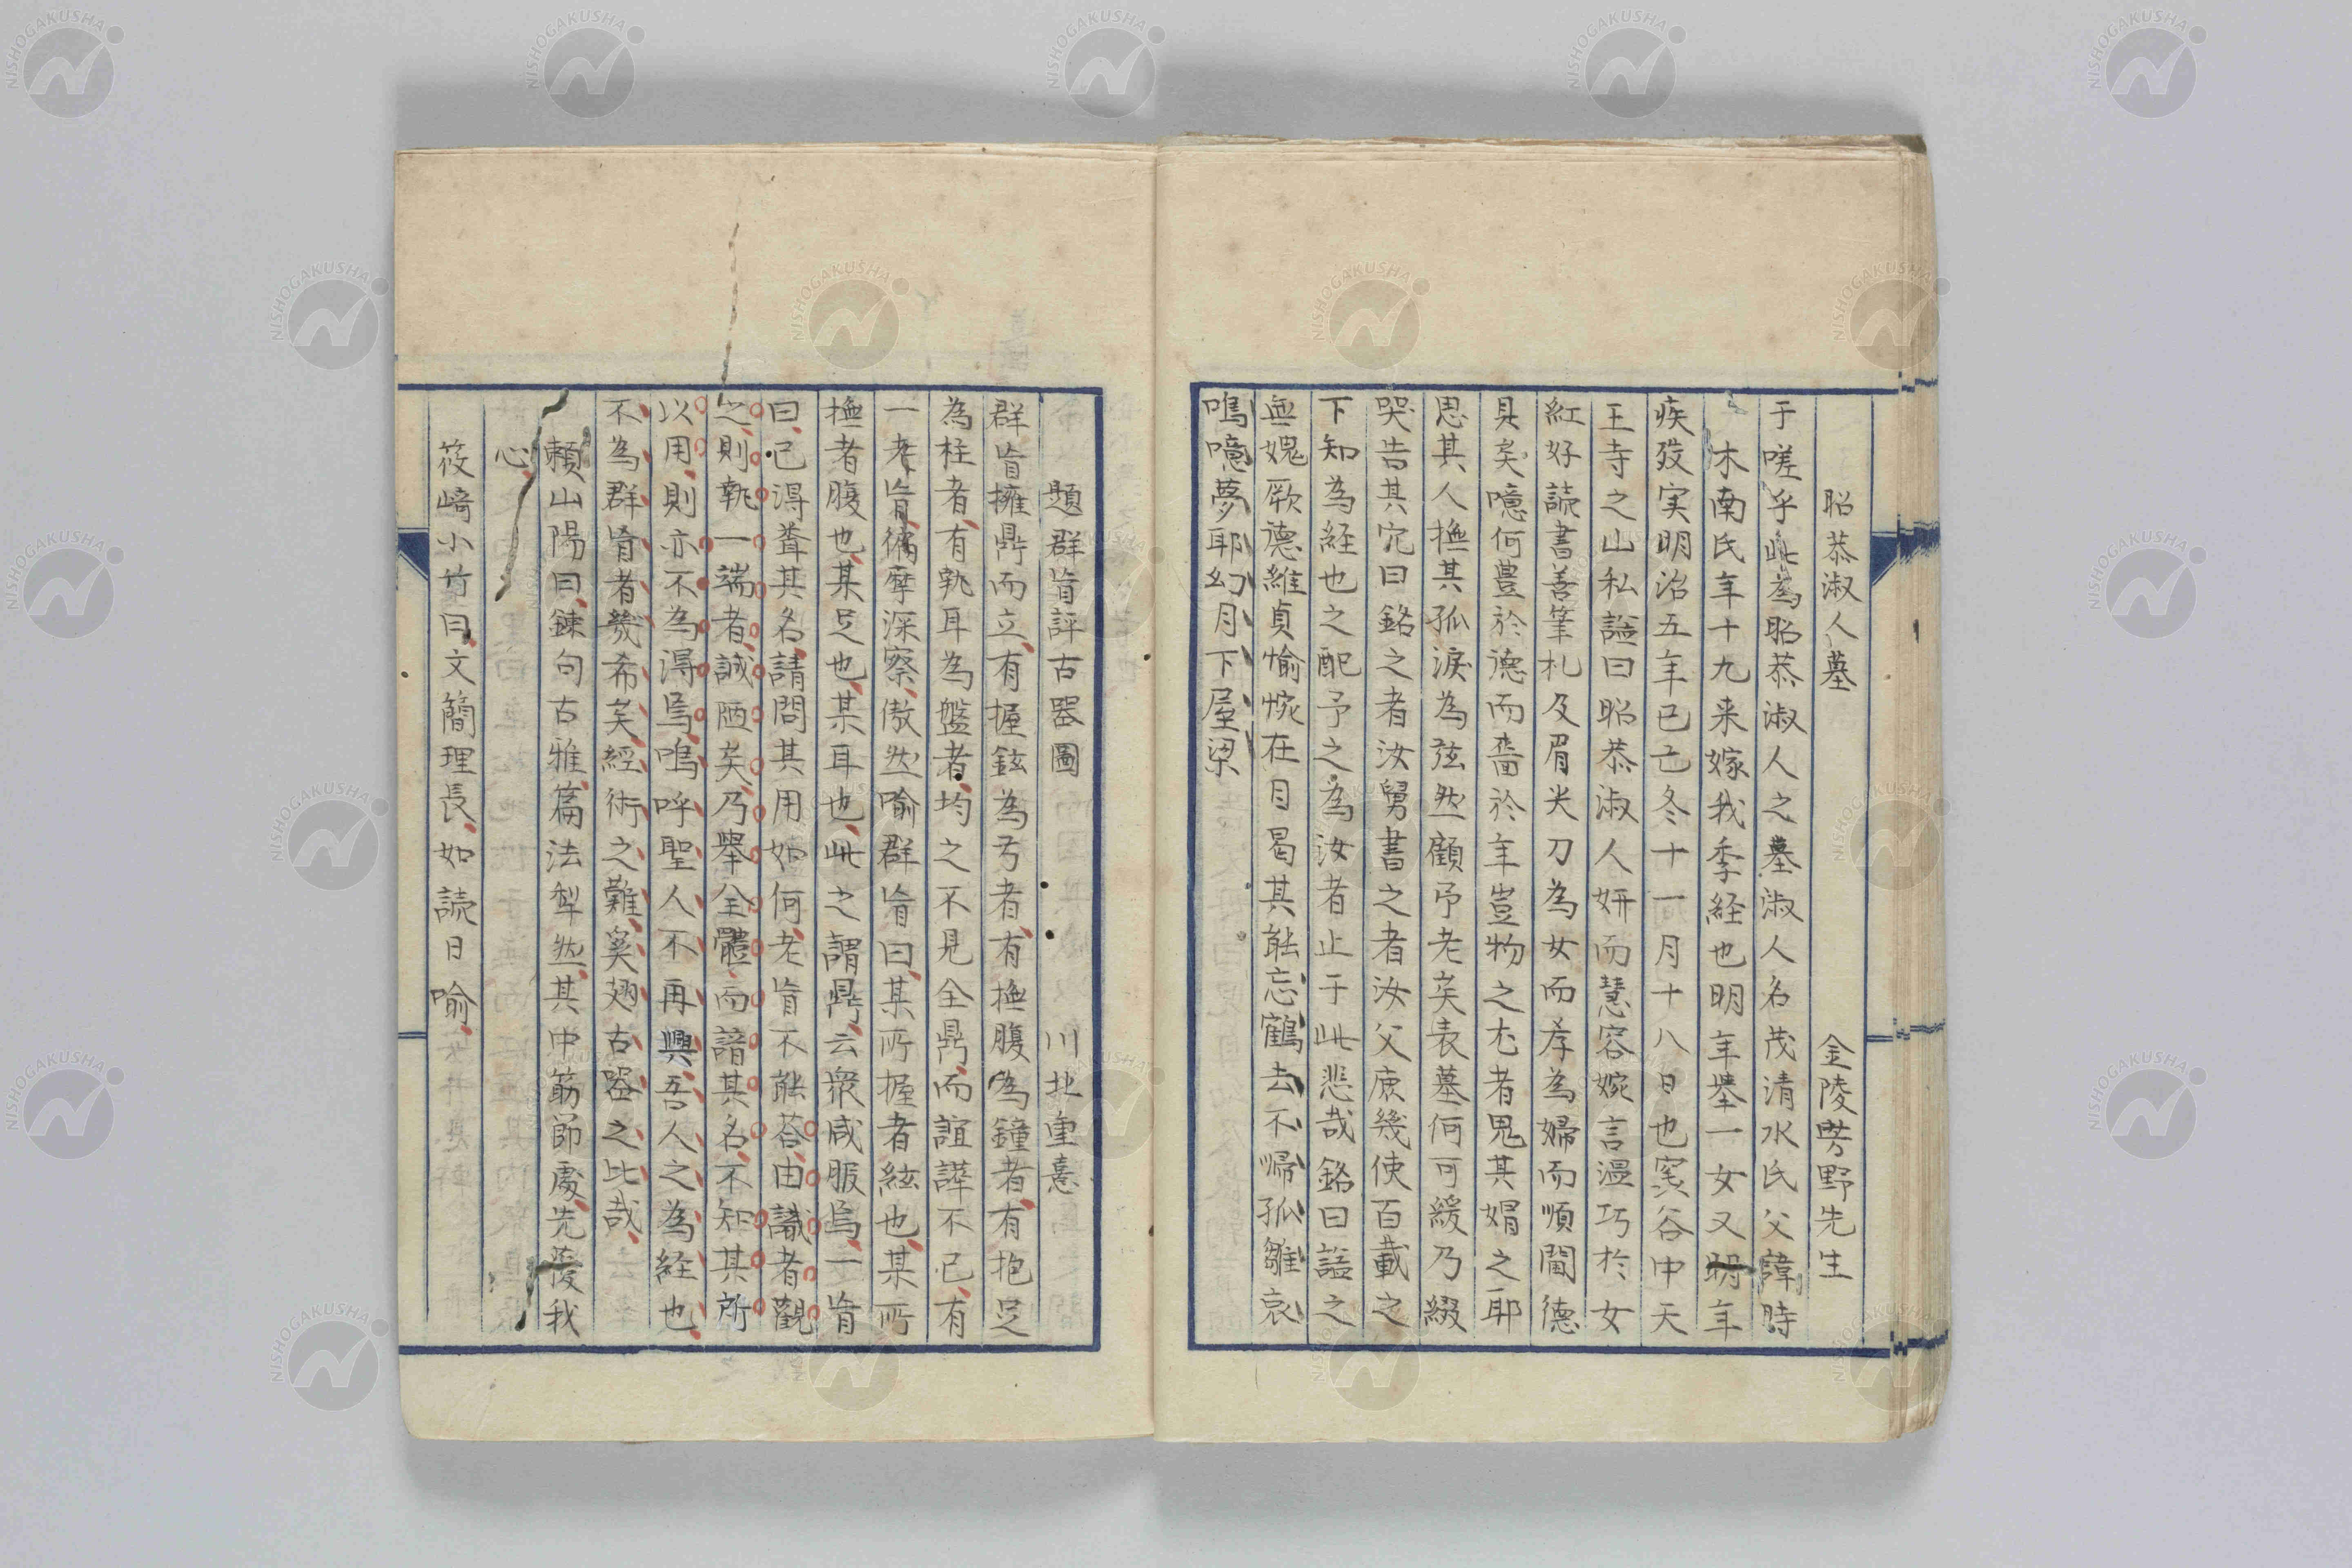 昭恭淑人墓　金陵嶴野先生
于嗟乎此為昭恭淑人之墓淑人名茂清水氏父諱時
木南氏年十九来嫁我季経也明年挙一女又明年
疾歿実明治五年已亡冬十一月十八日也窆谷中天
王寺之山私諡曰昭恭淑人妍而慧容婉言温巧於女
紅好読書善筆札及眉尖刀為女而孝為婦而順閫徳
具矣噫何豊於徳而嗇於年豈物之尤者鬼其媢之耶
思其人撫其孤涙為弦然顧予老矣表墓何可緩乃綴
哭告其穴曰銘之者汝舅書之者汝父庶幾使百載之
下知為経也之配予之為汝者止于此悲哉銘曰諡之
無媿厥徳維貞愉惋在目曷其能忘鶴去不帰孤雛哀
鳴噫夢耶幻月下屋梁
題群盲評古器圖　川北重憙
群盲擁鼎而立有握鉉為弓者有撫腹為鐘者有抱足
為柱者有執耳為盤者均之不見全鼎而諠譁不已有
一老盲徧摩深察傲然喻群盲曰某所握者鉉也某所
撫者腹也某足也某耳也此之謂鼎云衆咸服焉一盲
曰已得聋其名請問其用如何老盲不能荅由識者觀
之則執一端者誠陋矣乃舉全體而諳其名不知其所
以用則亦不為得焉嗚呼聖人不再興吾人之為経也
不為群盲者幾希矣經術之難奚翅古器之比哉
頼山陽曰錬句古雅篇法犁然其中筋節處先獲我
心
筱崎小竹曰文簡理長如読日喻
NISHOGAKUSHA